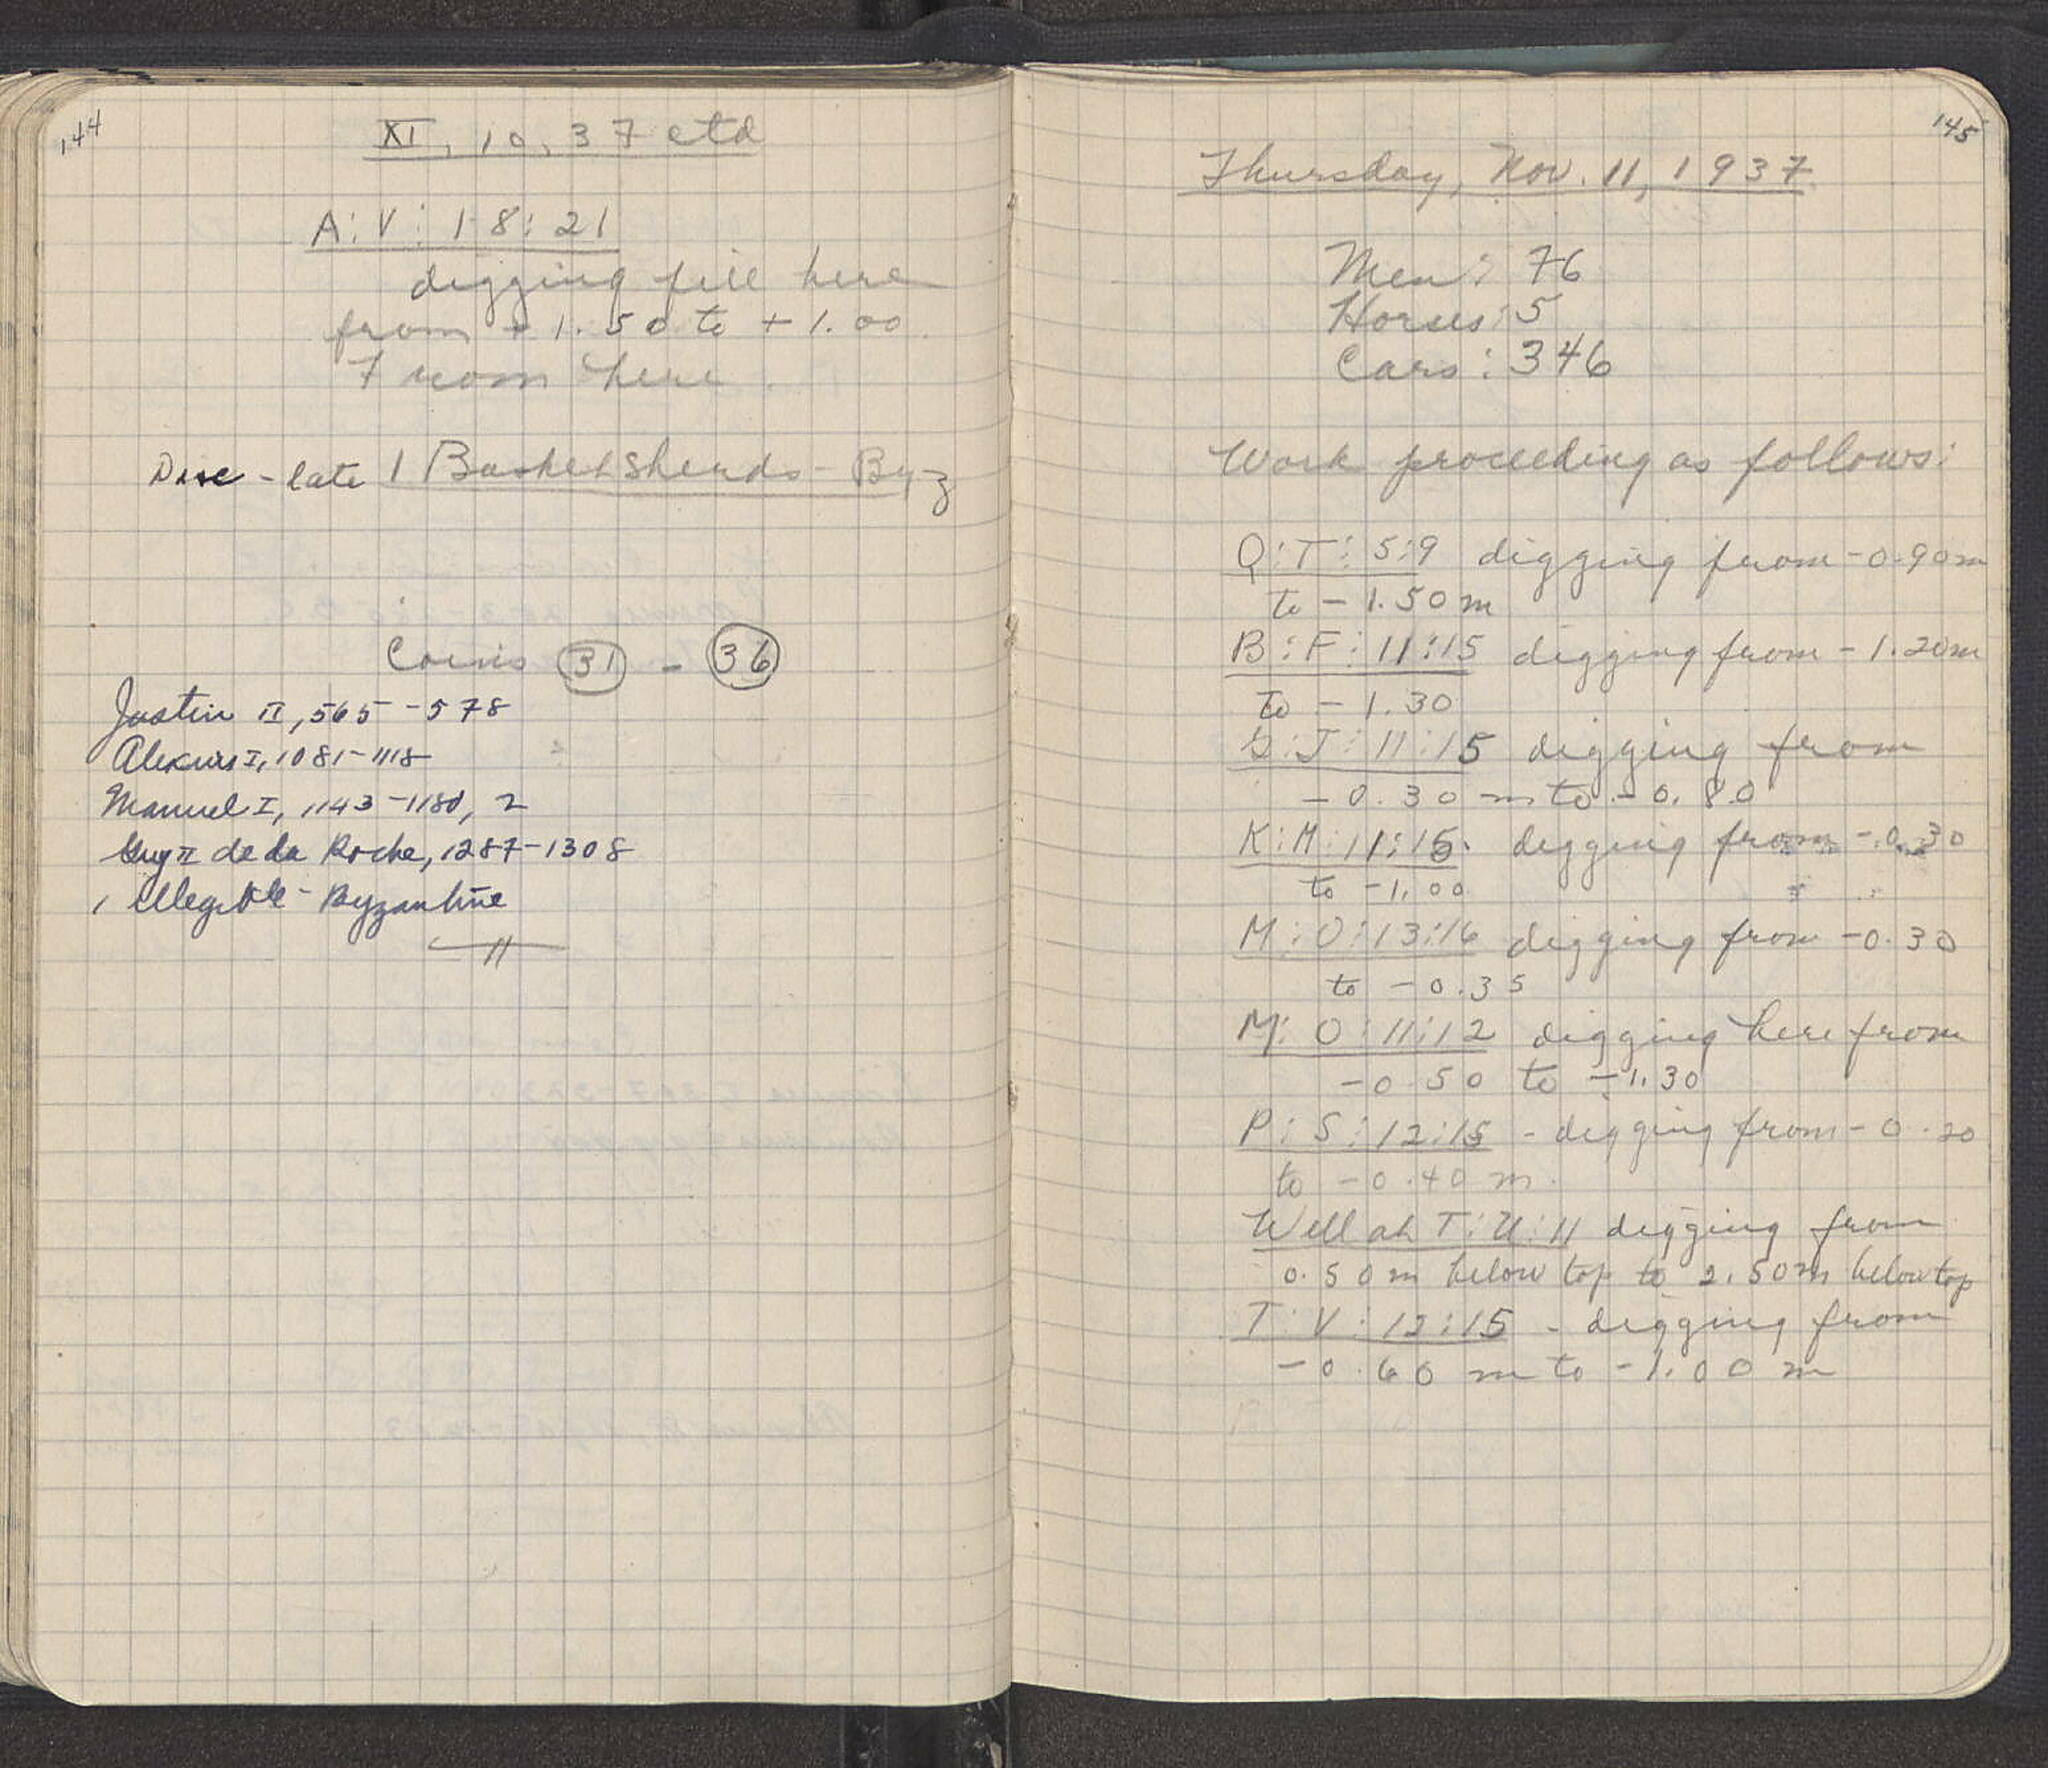 144
XI, 10, 37 ctd
A:V:18:21
digging fill here
from +1.50 to +1.00
from here.
Disc - late 1 Basket Sherds - Byz
Coins 31 - 36
Justin II, 565-578
Alexius I, 1081-1118
Manuel I, 1143-1180, 2
Guy II de la Roche, 1287-1308
1 illegible - Byzantine
145
Thursday, Nov. 11, 1937
Men: 76
Horses: 5
Cars: 346
Work proceeding as follows:
Q:T:5:9 digging from -0.90m
to -1.50m
B:F:11:15 digging from -1.20m
to -1.30
G:J:11:15 digging from
-0.30 m to -0.80
K:M:11:15. digging from -0.30
to -1.00
M:O:13:16 digging from -0.30
to -0.35
M:O:11:12 digging here from
-0.50 to -1.30
P:S:12:15 - digging from -0.20
to -0.40 m.
Well at T:U:11 digging from
0.50m below top to 2.50m below top
T:V:12:15 - digging from
-0.60 m to -1.00 m